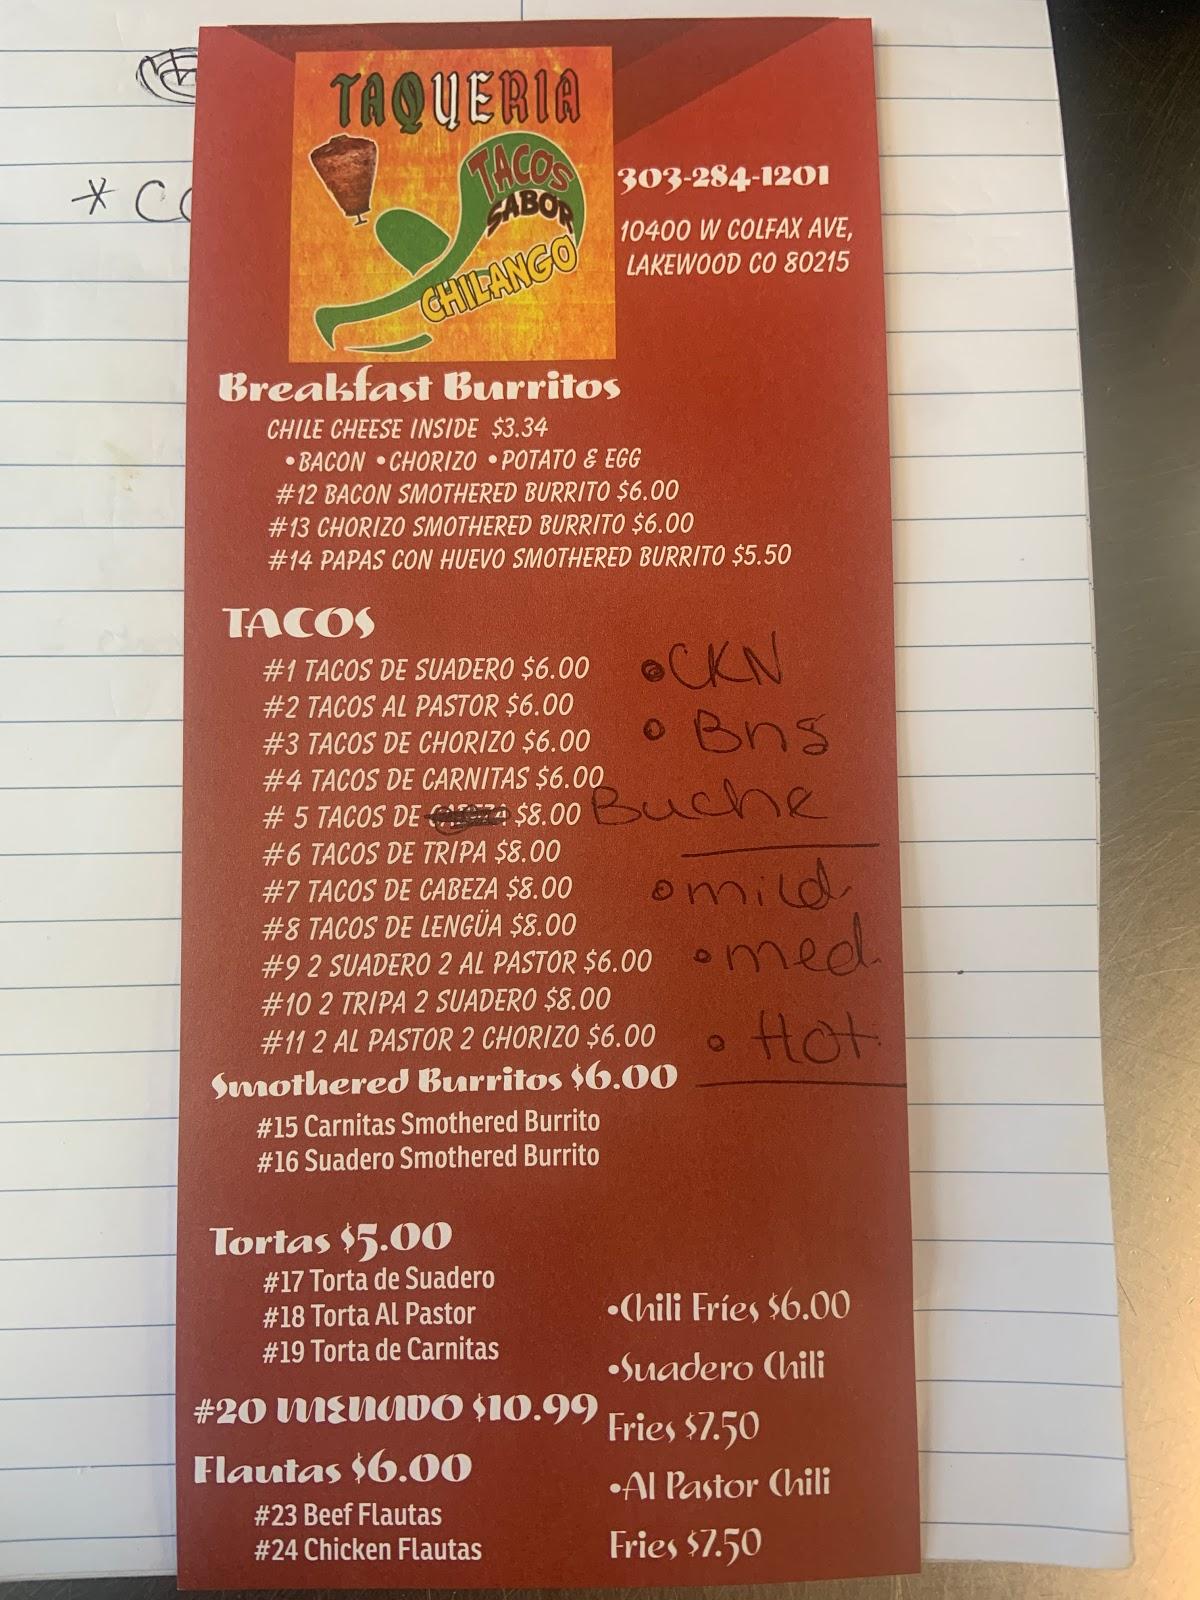 * CO
TAQUERIA
TACOS
SABOR
CHILANGO
303-284-1201
10400 W COLFAX AVE,
LAKEWOOD CO 80215
Breakfast Burritos
CHILE CHEESE INSIDE $3.34
•BACON •CHORIZO •POTATO & EGG
#12 BACON SMOTHERED BURRITO $6.00
#13 CHORIZO SMOTHERED BURRITO $6.00
#14 PAPAS CON HUEVO SMOTHERED BURRITO $5.50
TACOS
#1 TACOS DE SUADERO $6.00
#2 TACOS AL PASTOR $6.00
#3 TACOS DE CHORIZO $6.00
#4 TACOS DE CARNITAS $6.00
# 5 TACOS DE $8.00 Buche
#6 TACOS DE TRIPA $8.00
#7 TACOS DE CABEZA $8.00
#8 TACOS DE LENGÜA $8.00
#9 2 SUADERO 2 AL PASTOR $6.00
#10 2 TRIPA 2 SUADERO $8.00
#11 2 AL PASTOR 2 CHORIZO $6.00
•CKN
• Bns
•mild
•med.
• Hot.
Smothered Burritos $6.00
#15 Carnitas Smothered Burrito
#16 Suadero Smothered Burrito
Tortas $5.00
#17 Torta de Suadero
#18 Torta Al Pastor
#19 Torta de Carnitas
#20 MENUDO $10.99
Flautas $6.00
#23 Beef Flautas
#24 Chicken Flautas
•Chili Fries $6.00
•Suadero Chili
Fries $7.50
•Al Pastor Chili
Fries $7.50